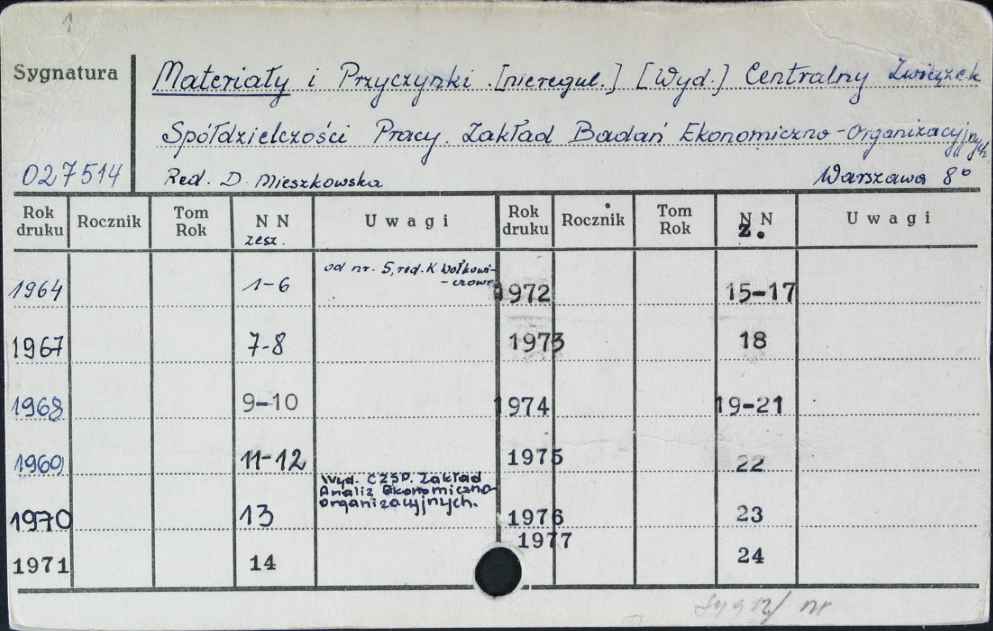 Sygnatura
Materiały i Przyczynki. [nieregul.] [Wyd.] Centralny Związek
Spółdzielczości Pracy. Zakład Badań Ekonomiczno-Organizacyjnych
027514 Red. D. Mieszkowska Warszawa 8°
Rok druku Rocznik Tom Rok NN zesz. Uwagi Rok druku Rocznik Tom Rok NN z. Uwagi
1964 1-6 od nr. 5, red. K. Wołkowi-czowa 1972 15-17
1967 7-8 1973 18
1968 9-10 1974 19-21
1969 11-12 1975 22
Wyd. CZSP. Zakład
Analiz Ekonomiczno-
Organizacyjnych.
1970 13 1976 23
1971 14 1977 24
nr